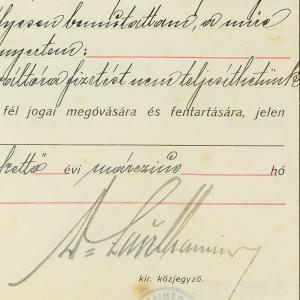 lyesen bemutattam, a mire
nyertem;
váltóra fizetést nem teljesíthetünk
fél jogai megóvására és fentartására, jelen
kettő évi márczius hó
Dr
kir. közjegyző.